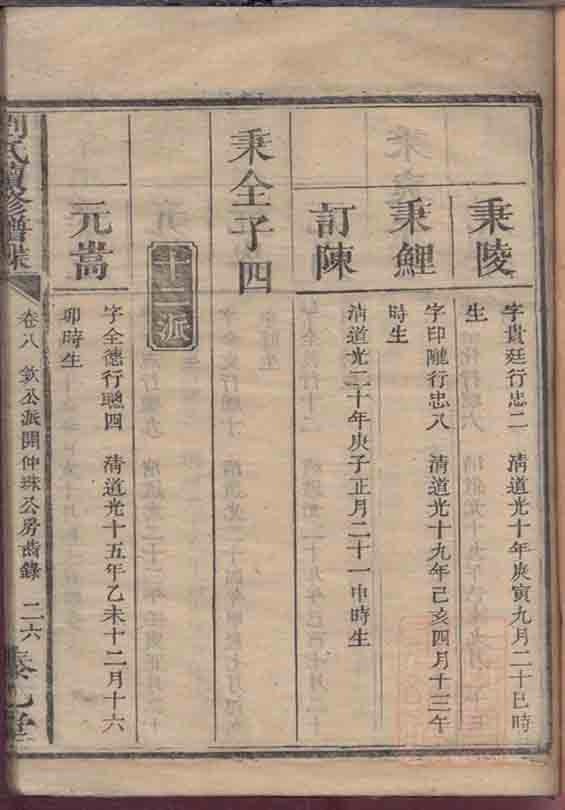 秉陵
字貴廷行忠二　清道光十年庚寅九月二十巳時
生
秉鯉
字印隴行忠八　清道光十九年己亥四月十三午
時生
訂陳
清道光二十年庚子正月二十一申時生
秉全子四
十二派
元嵩
字全德行聰四　清道光十五年乙未十二月十六
卯時生
劉氏續修譜牒
卷八　欽公派開仲珠公房齒錄　二六